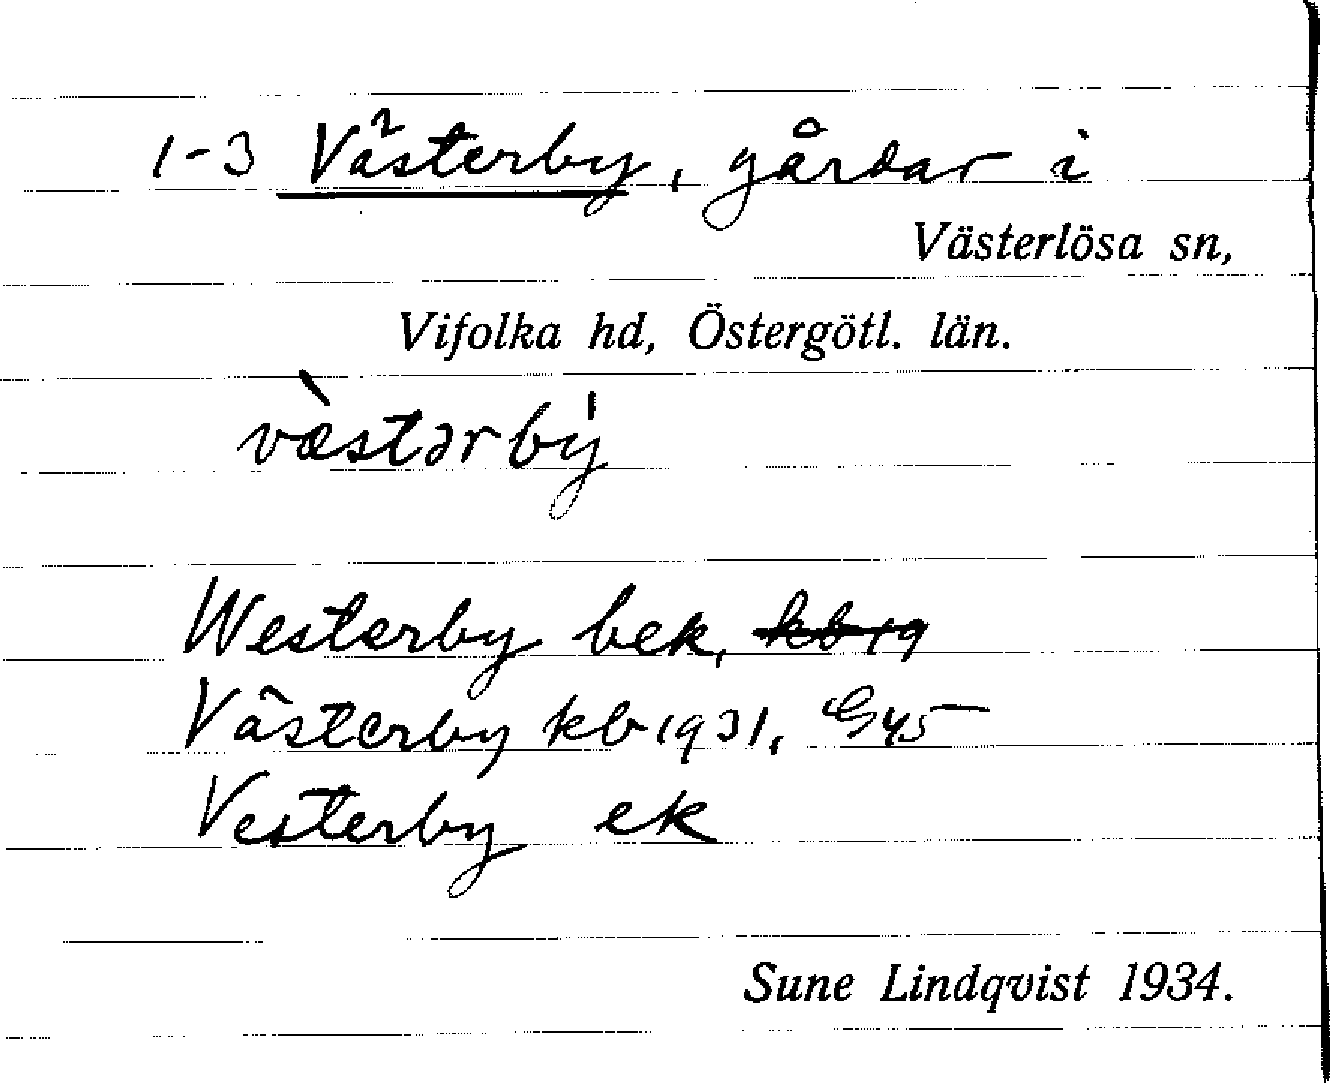 1-3 Västerby, gårdar i
Västerlösa sn,
Vifolka hd, Östergötl. län.
væ̀stərbý
Westerby bek, kb 19
Västerby kb 1931, G45
Vesterby ek
Sune Lindqvist 1934.